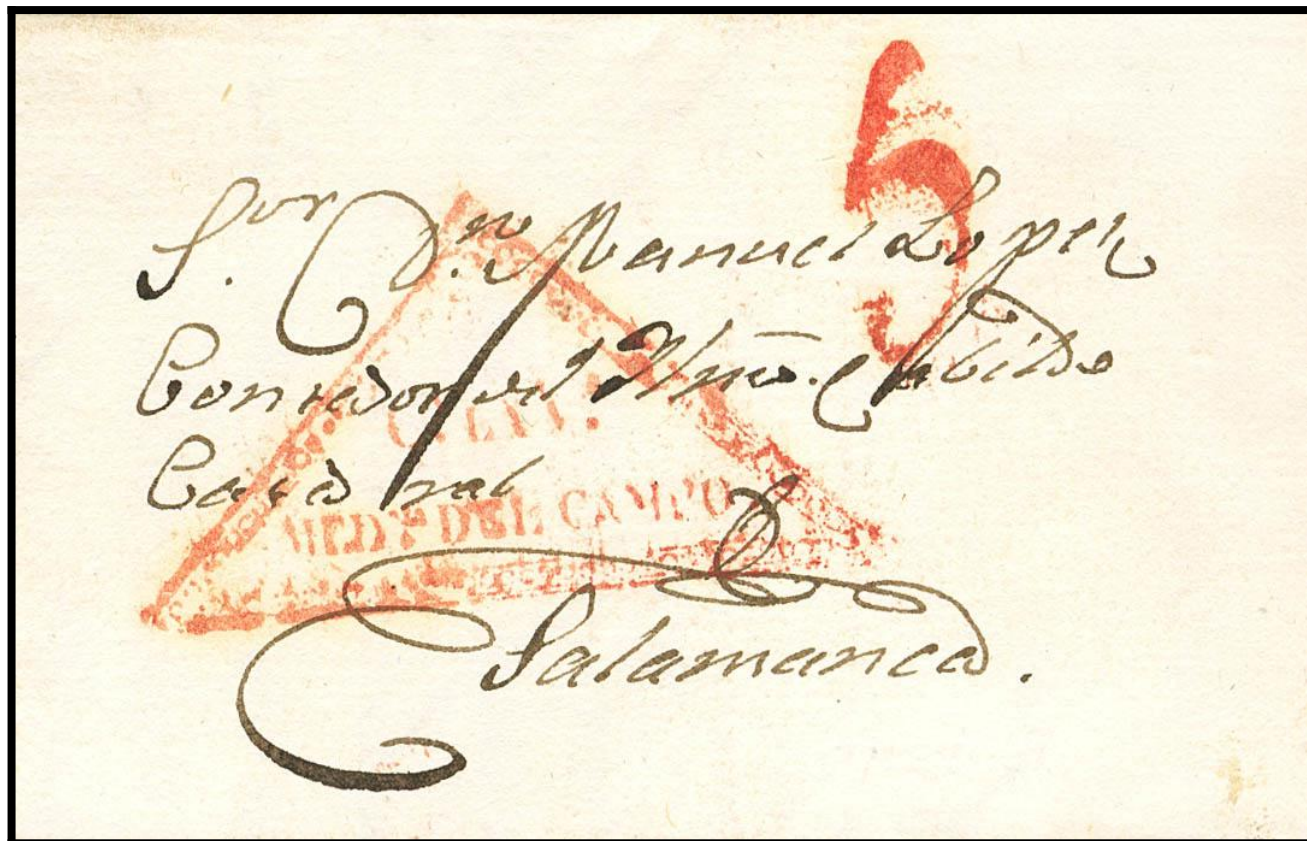 5
S.or D.n Manuel Lopez
Contador del Yllmo. Cabildo
Catedral
MEDª DEL CAMPO
Salamanca.